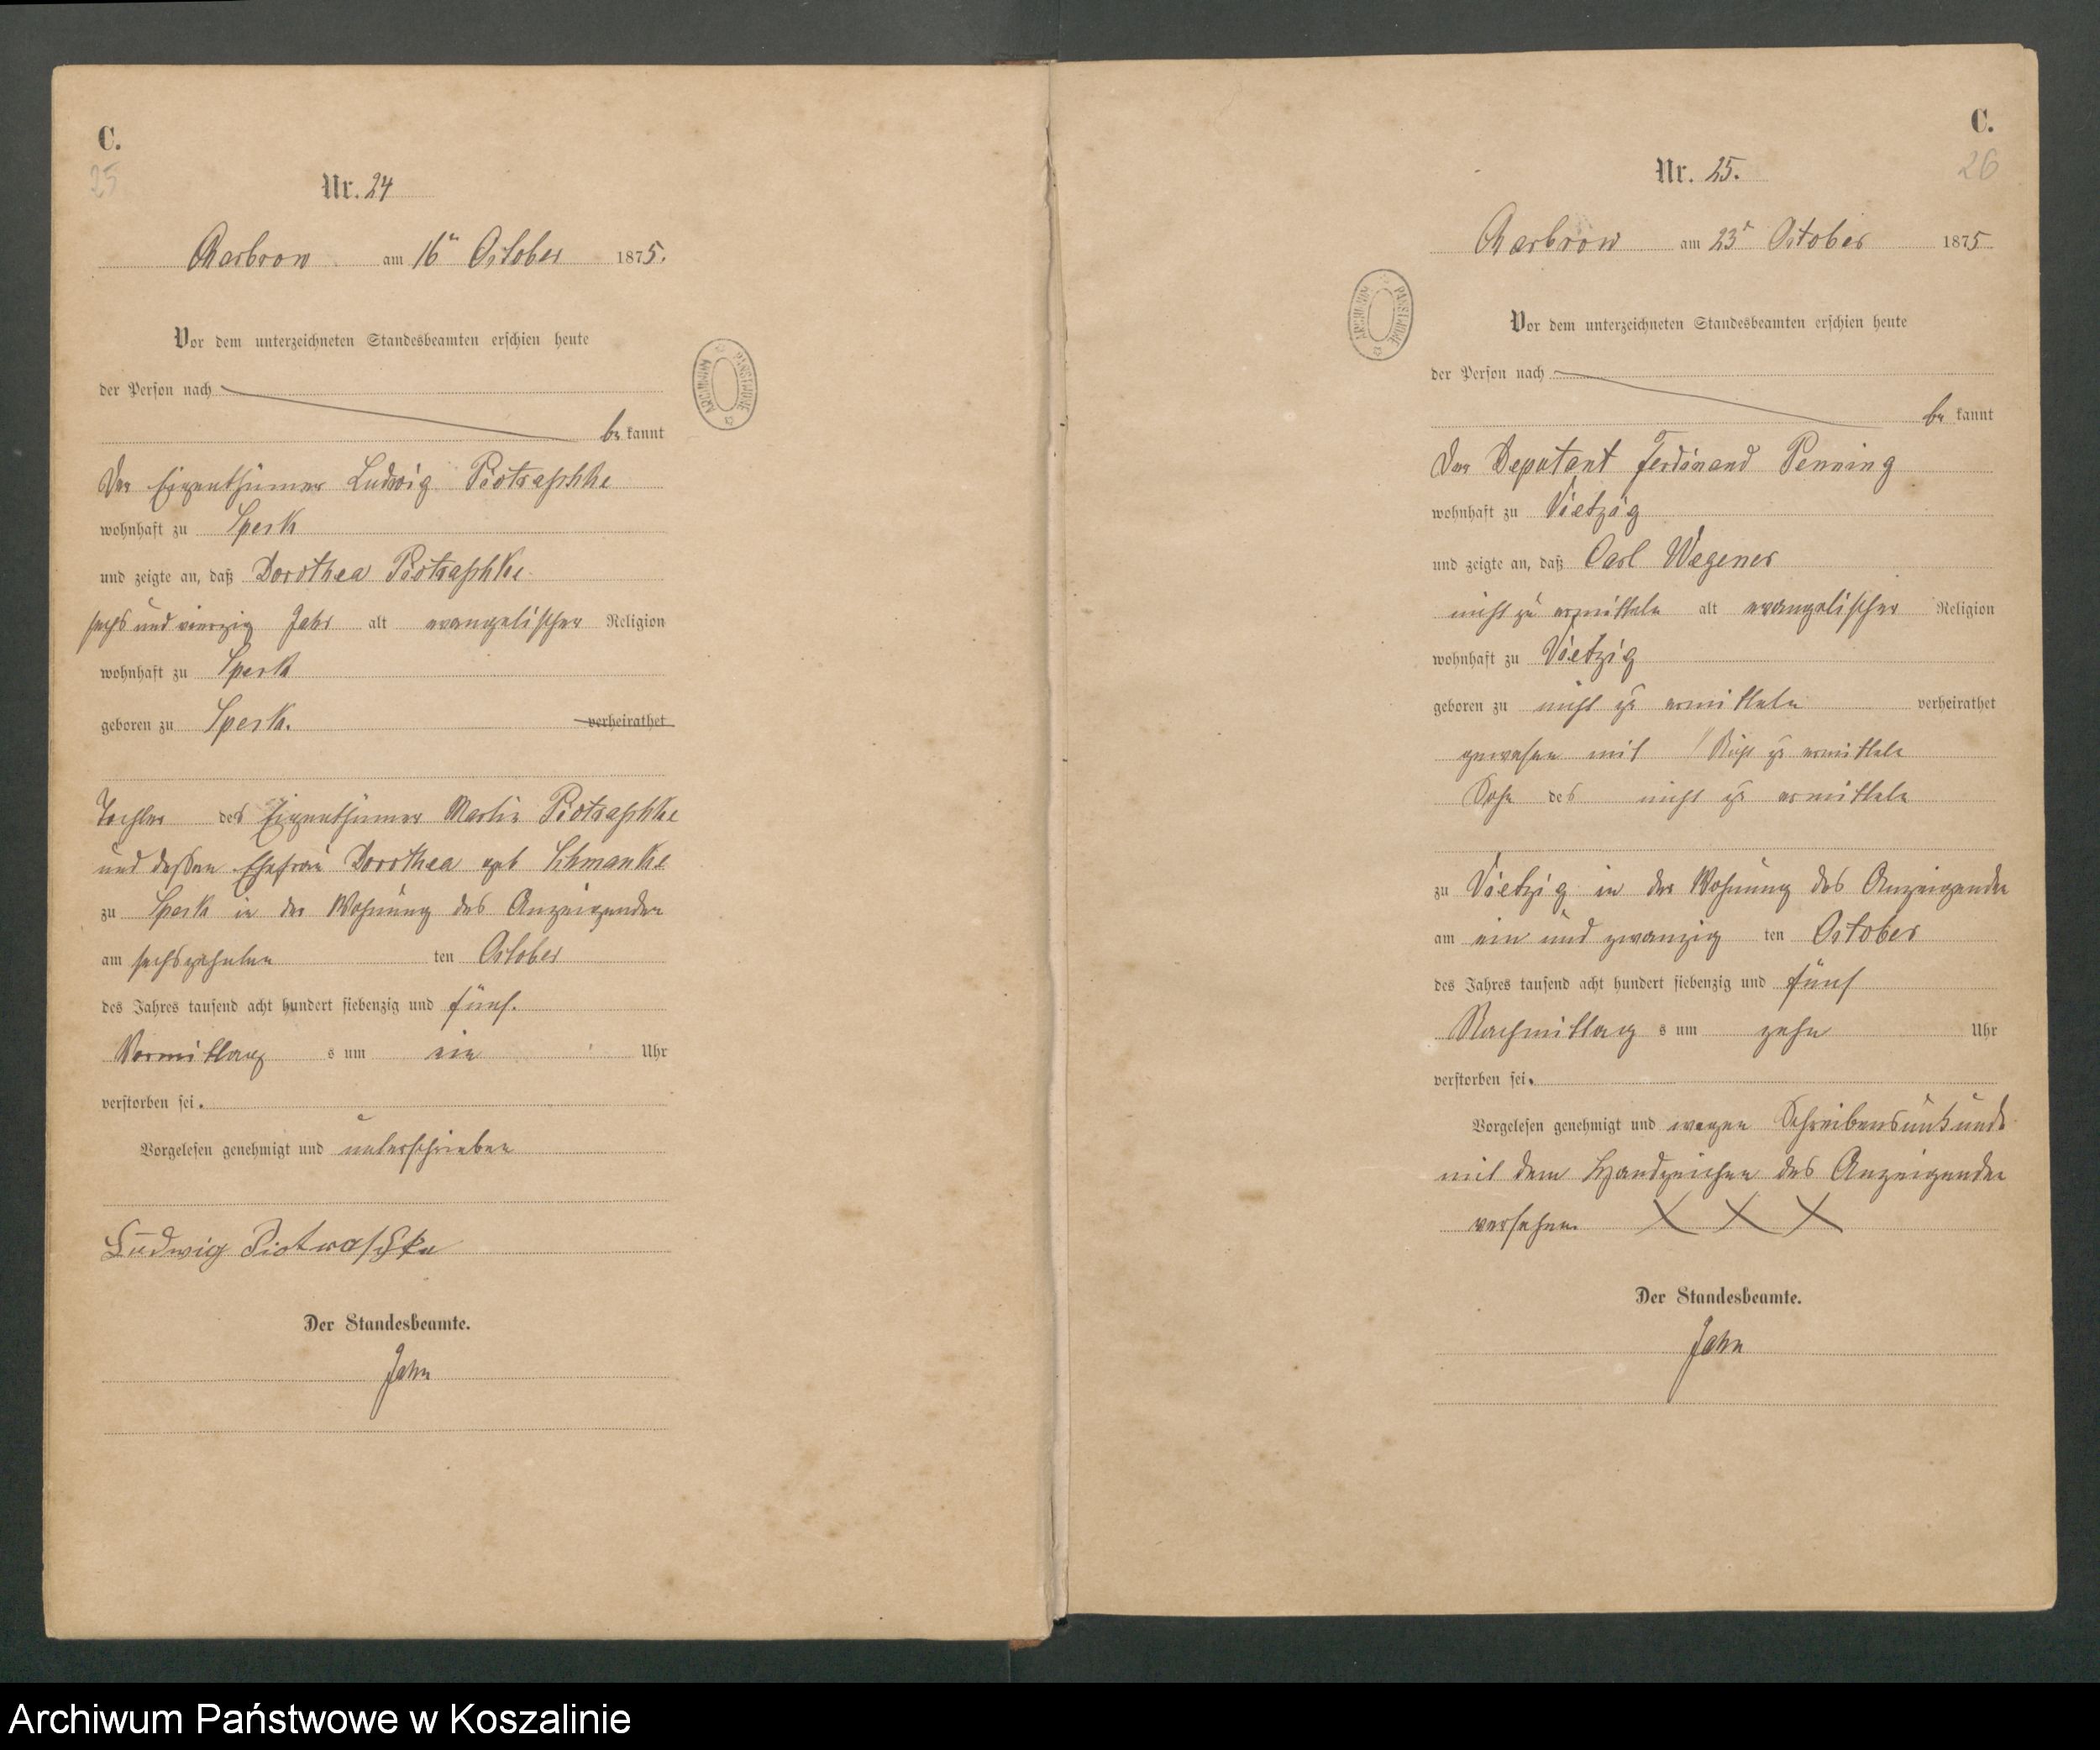 C.
25
Nr. 24
Charbrow am 16n October 1875.
Vor dem unterzeichneten Standesbeamten erschien heute
der Person nach
be kannt
Der Eigenthümer Ludwig Piotraschke
wohnhaft zu Speck
und zeigte an, daß Dorothea Piotraschke
sechs und vierzig Jahr alt evangelischer Religion
wohnhaft zu Speck
geboren zu Speck. verheirathet
Tochter des Eigenthümer Martin Piotraschke
und dessen Ehefrau Dorothea geb Schmanke
zu Speck in der Wohnung des Anzeigenden
am sechszehnten ten October
des Jahres tausend acht hundert siebenzig und fünf.
Vormittag s um ein Uhr
verstorben sei.
Vorgelesen genehmigt und unterschrieben
Ludwig Piotraschke
Der Standesbeamte.
Jahn
ARCHIWUM PAŃSTWOWE
C.
26
Nr. 25.
Charbrow am 23n October 1875
Vor dem unterzeichneten Standesbeamten erschien heute
der Person nach
be kannt
Der Deputant Ferdinand Penning
wohnhaft zu Vietzig
und zeigte an, daß Carl Wagener
nicht zu ermitteln alt evangelischer Religion
wohnhaft zu Vietzig
geboren zu nicht zu ermitteln verheirathet
gewesen mit Nicht zu ermitteln
Sohn des nicht zu ermitteln
zu Vietzig in der Wohnung des Anzeigenden
am ein und zwanzig ten October
des Jahres tausend acht hundert siebenzig und fünf
Nachmittag s um zehn Uhr
verstorben sei.
Vorgelesen genehmigt und wegen Schreibensunkunde
mit dem Handzeichen des Anzeigenden
versehen. X X X
Der Standesbeamte.
Jahn
ARCHIWUM PAŃSTWOWE
Archiwum Państwowe w Koszalinie